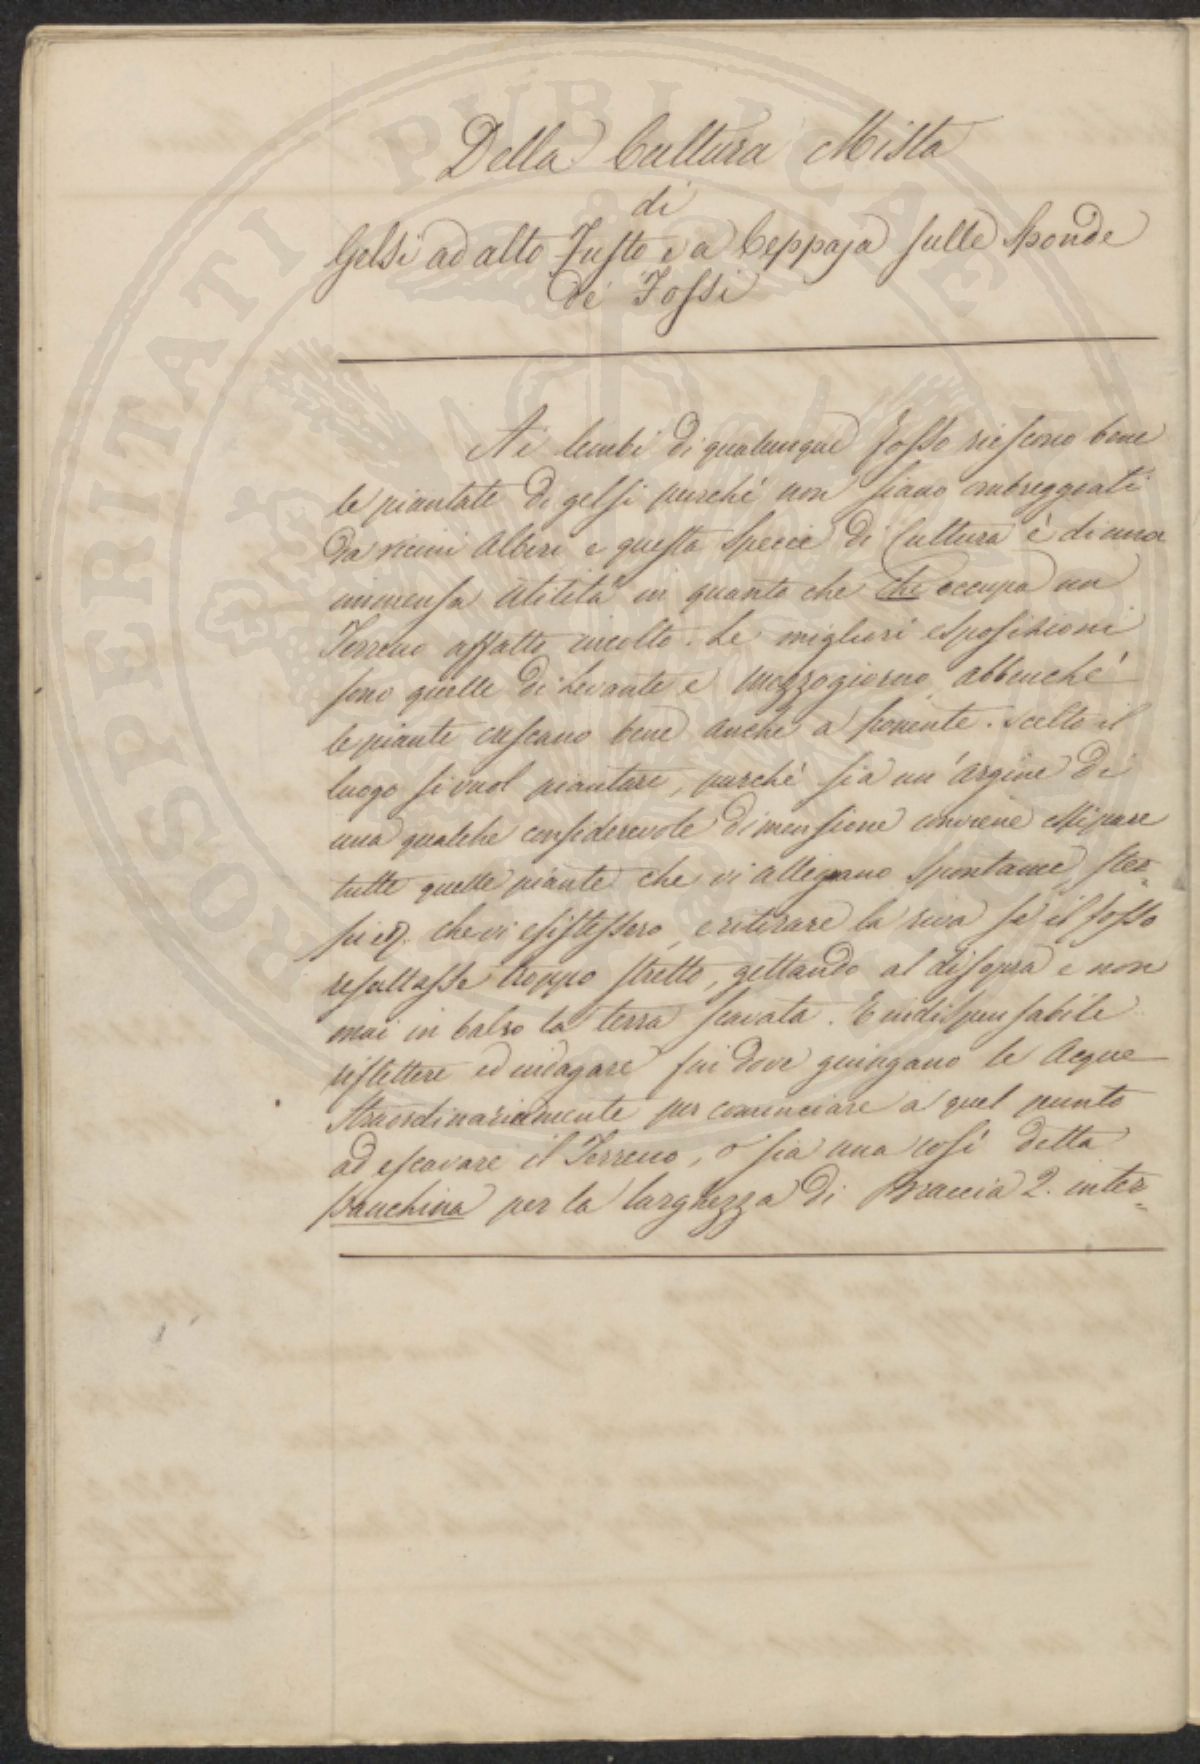 Della Cultura Mista
di
Gelsi ad alto Fusto e a Ceppaja sulle Sponde
de' Fossi
Ai lembi di qualunque fosso riescono bene
le piantate di gelsi purché non siano ombreggiati
da vicini Alberi e questa Specie di Cultura è di una
immensa utilità in quanto che che occupa un
Terreno affatto incolto. Le migliori esposizioni
sono quelle di Levante e Mezzogiorno, abbenché
le piante crescano bene anche a ponente. Scelto il
luogo si vuol piantare, purché sia un'Argine di
una qualche considerevole dimensione conviene estirpare
tutte quelle piante che vi allignano Spontanee,
che vi esistessero, e ritirare la riva se il fosso
resultasse troppo stretto, gettando al disopra e non
mai in basso la terra scavata. E indispensabile
riflettere ed indagare fin dove giungano le Acque
straordinariamente per cominciare a quel punto
ad escavare il Terreno, o sia una così detta
banchina per la larghezza di Braccia 2. inter=
PROSPERITATI PUBLICAE